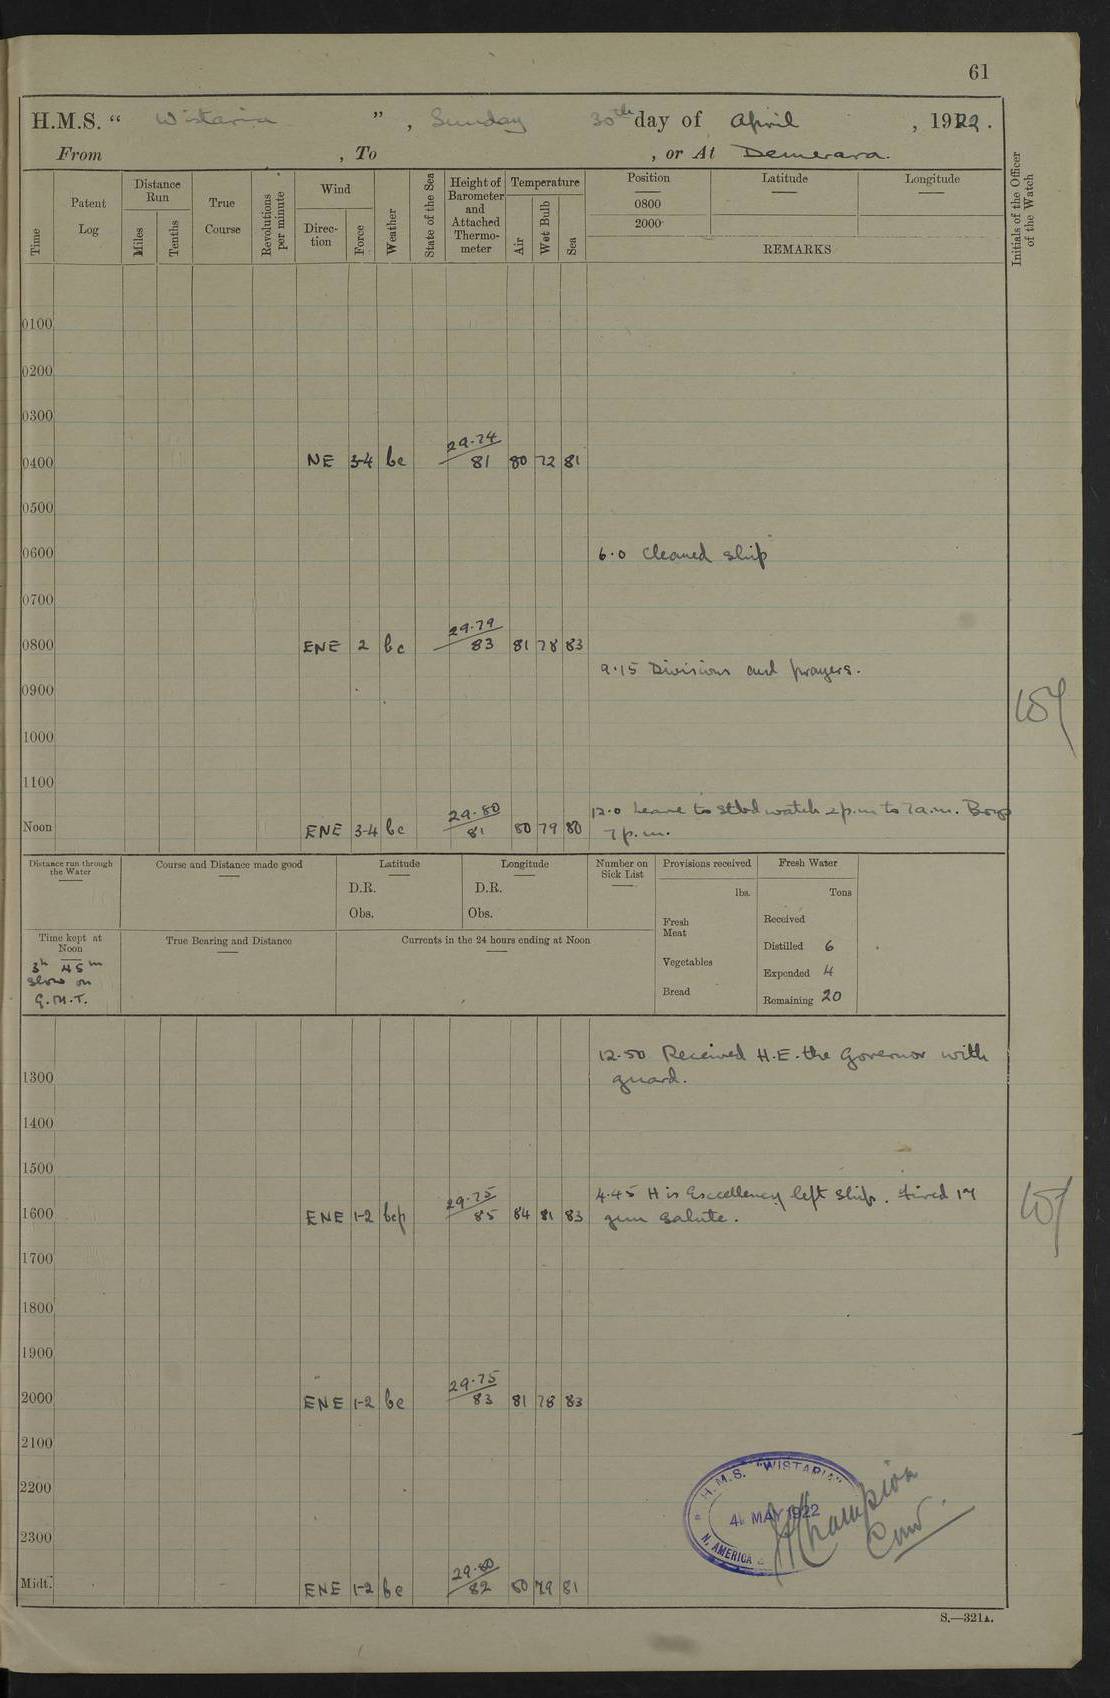 61
H.M.S. “ Wistaria ” , Sunday 30th day of April , 1922 .
From , To , or At Demerara.
Time
Patent Log
Distance Run
Miles
Tenths
True Course
Revolutions per minute
Wind
Direc- tion
Force
Weather
State of the Sea
Height of Barometer and Attached Thermo- meter
Temperature
Air
Wet Bulb
Sea
Position
0800
2000
Latitude
Longitude
REMARKS
Initials of the Officer of the Watch
0100
0200
0300
29.74
0400 NE 3-4 bc 81 80 72 81
0500
0600 6.0 Cleaned ship
0700
29.79
0800 ENE 2 bc 83 81 78 83
9.15 Divisions and prayers.
0900
1000
1100
29.80 12.0 Leave to stbd watch 2 p.m to 7 a.m. Boys
Noon ENE 3-4 bc 81 80 79 80 7 p.m.
Distance run through the Water
Course and Distance made good
Latitude
D.R.
Obs.
Longitude
D.R.
Obs.
Number on Sick List
Provisions received
lbs.
Fresh Meat
Vegetables
Bread
Fresh Water
Tons
Received
Distilled 6
Expended 4
Remaining 20
Time kept at Noon
3h 45m
slow on
G.M.T.
True Bearing and Distance
Currents in the 24 hours ending at Noon
12.50 Received H.E. the Governor with
1300 guard.
1400
1500
29.75 4.45 His Excellency left ship. Fired 17
1600 ENE 1-2 bcp 85 84 81 83 gun salute.
1700
1800
1900
29.75
2000 ENE 1-2 bc 83 81 78 83
2100
2200
2300
29.80
Midt. ENE 1-2 bc 82 80 79 81
H.M.S. "WISTARIA"
4 MAY 1922
N. AMERICA &
Champion
Com^r.
S.—321A.